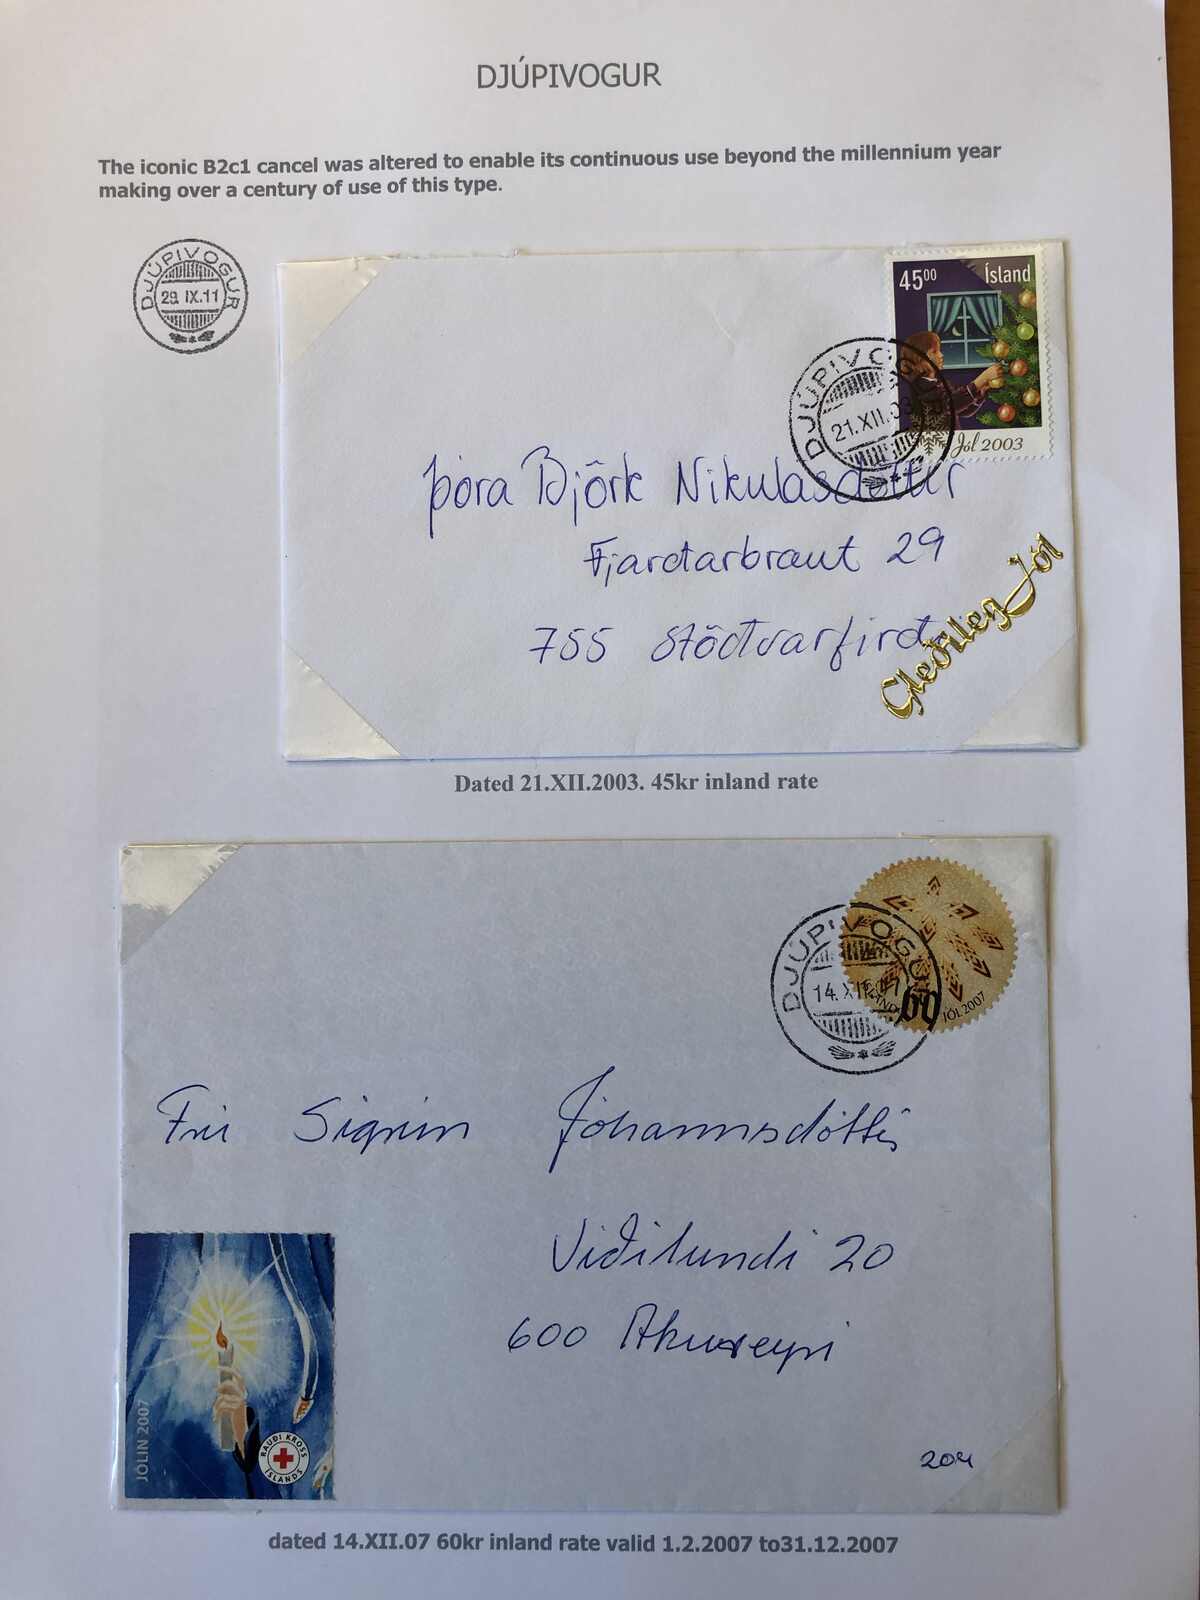 DJÚPIVOGUR
The iconic B2c1 cancel was altered to enable its continuous use beyond the millennium year
making over a century of use of this type.
DJÚPIVOGUR
29. IX.11
45⁰⁰ Ísland
Jól 2003
DJÚPIVOGUR
21.XII.03
Þóra Björk Nikulasdottir
Fjardarbraut 29
755 Stödvarfirdi
Gleðileg Jól
Dated 21.XII.2003. 45kr inland rate
DJÚPIVOGUR
14.XII.07
ÍSLAND
60
JÓL 2007
Frú Sigrún Jóhannsdóttir
Víðilundi 20
600 Akureyri
JÓLIN 2007
RAUÐI KROSS ÍSLANDS
204
dated 14.XII.07 60kr inland rate valid 1.2.2007 to31.12.2007